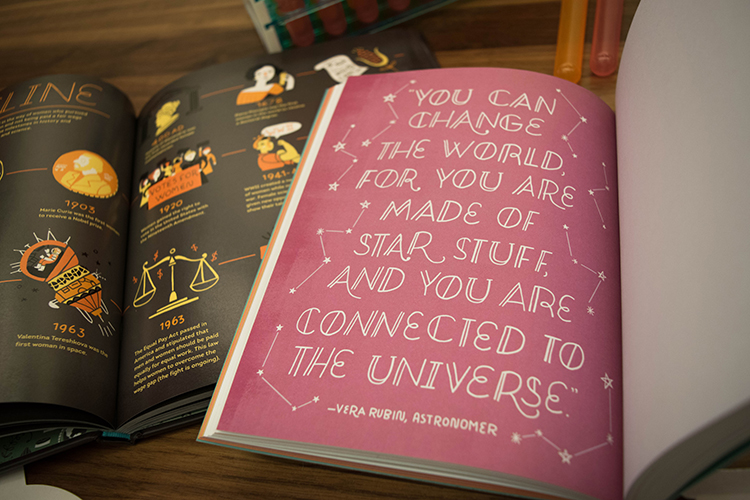 LINE
1903
Marie Curie was the first woman
to receive a Nobel prize.
1963
Valentina Tereshkova was the
first woman in space.
400AD
1678
VOTES FOR
WOMEN
1920
1941-
1963
The Equal Pay Act passed in
America and stipulated that
men and women should be paid
equally for equal work. This law
helps women to overcome the
wage gap (the fight is ongoing).
"YOU CAN
CHANGE
THE WORLD,
FOR YOU ARE
MADE OF
STAR STUFF,
AND YOU ARE
CONNECTED TO
THE UNIVERSE."
—VERA RUBIN, ASTRONOMER